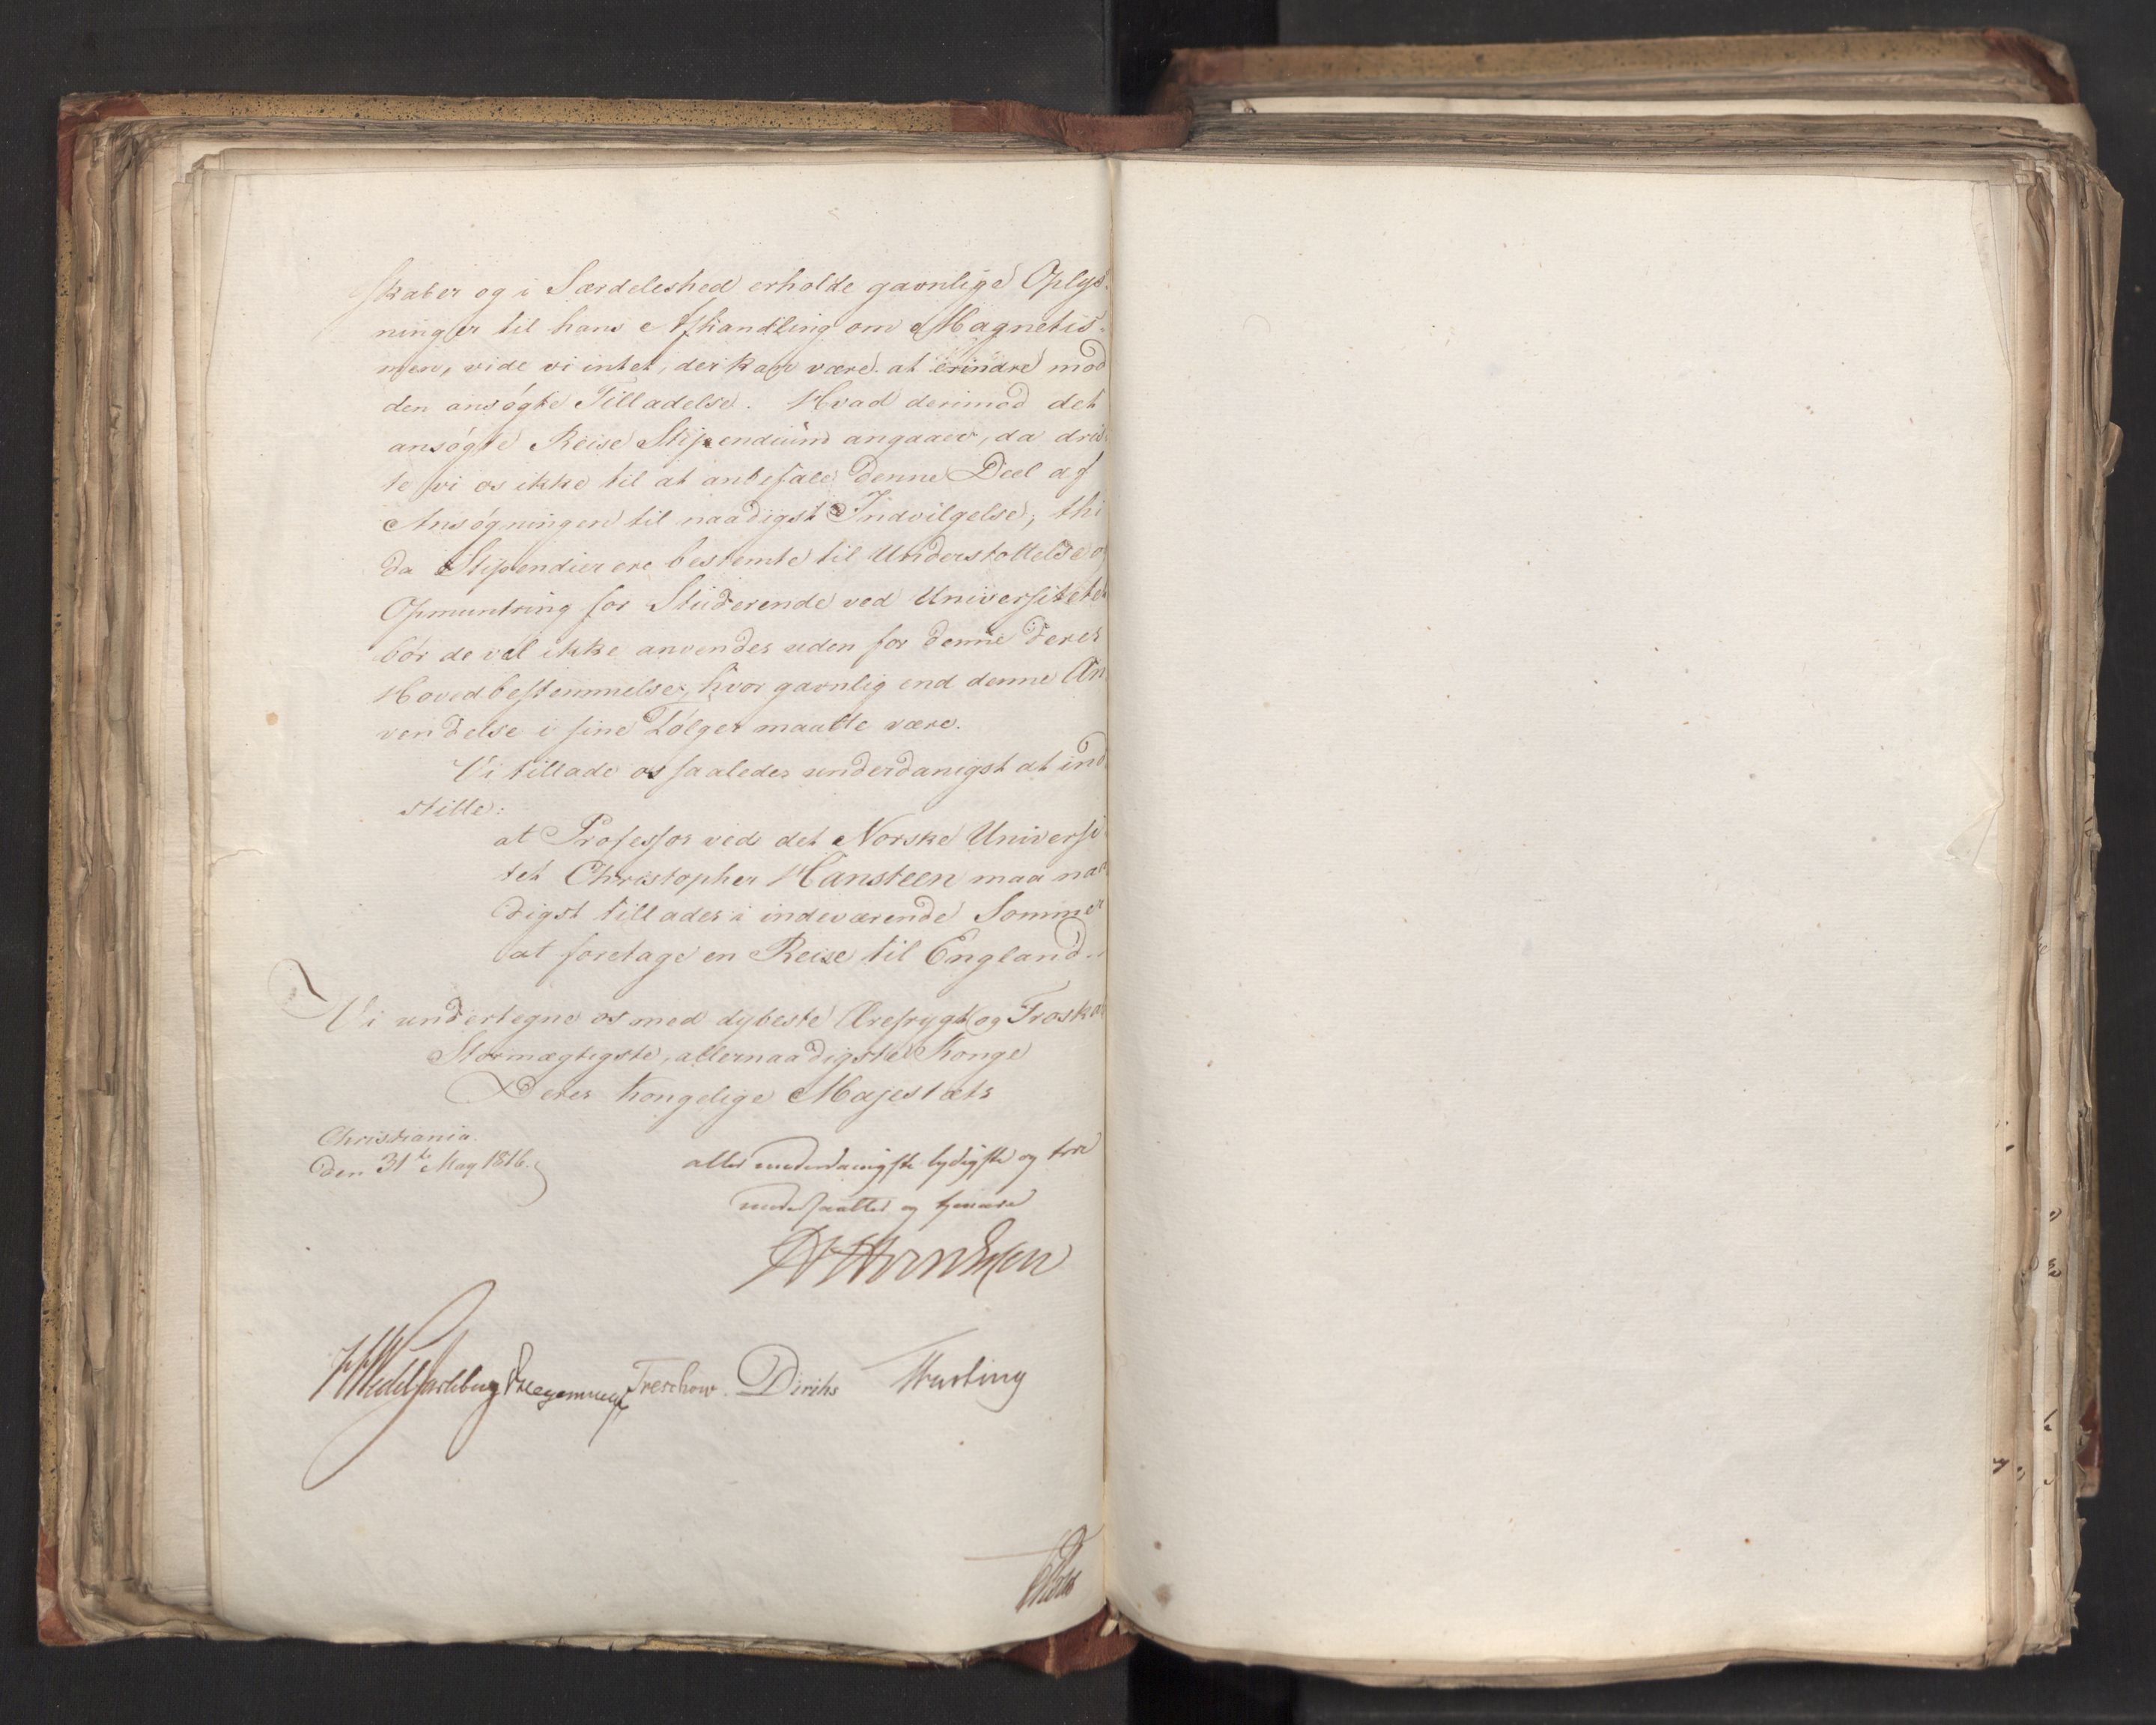 skaber og i Særdeleshed erholde gavnlige Oplys-
ninger til hans Afhandling om Magnetis-
men, vide vi intet, der kan være at erindre mod
den ansøgte Tilladelse. Hvad derimod det
ansøgte Reise Stipendium angaaer, da dris-
te vi os ikke til at anbefale denne Deel af
Ansøgningen til naadigst Indvilgelse; thi
da Stipendier ere bestemte til Understøttelse og
Opmuntring for Studerende ved Universitetet
bør de vel ikke anvendes uden for denne deres
Hovedbestemmelse, hvor gavnlig end denne An
vendelse i sine Følger maatte være.
Vi tillade os saaledes underdanigst at ind
stille:
at Professor ved det Norske Universi
tet Christopher Hansteen maa naa
digst tillades i indeværende Sommer
at foretage en Reise til England.
Vi undertegne os med dybeste Ærefrygt og Troskab
Stormægtigste, allernaadigste Konge
Deres Kongelige Majestæts
Christiania.
den 31te May 1816.
allerunderdanigste lydigste og troe
undersaatter og tjenere
Wedel Jarlsberg Treschow. Diriks